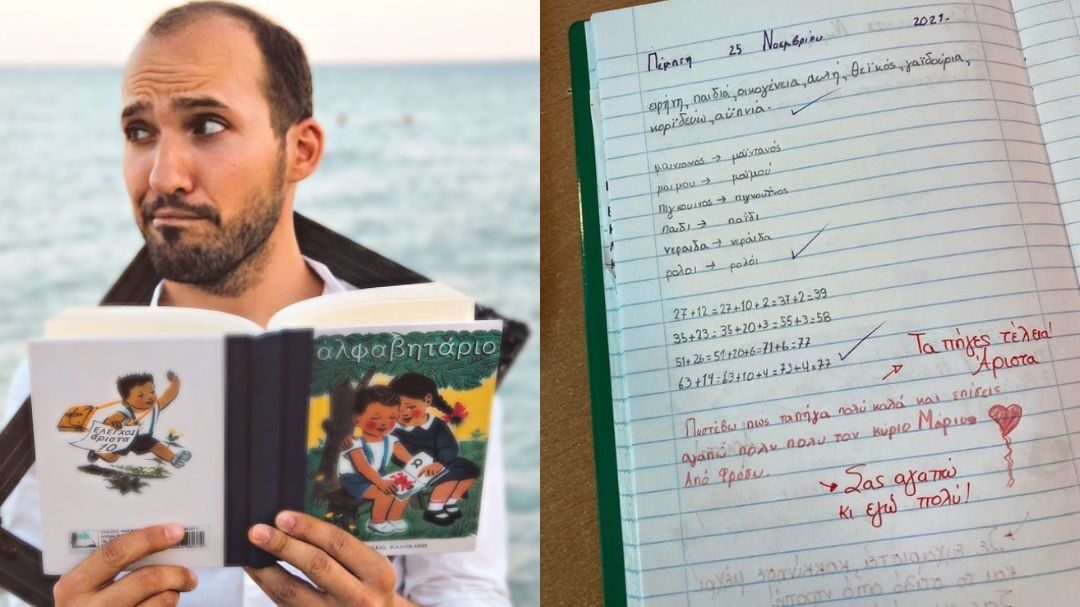 αλφαβητάριο
ΕΛΕΓΧΟΣ
άριστα
10
Πέμπτη 25 Νοεμβρίου 2021.
ειρήνη, παιδιά, οικογένεια, αυλή, θεϊκός, γαϊδούρια,
κοροϊδεύω, αϋπνία.
μαιντανος → μαϊντανός
μαιμου → μαϊμού
πιγκουινος → πιγκουίνος
παιδι → παϊδι
νεραιδα → νεράιδα
ρολοι → ρολόι
27+12=27+10+2=37+2=39
35+23=35+20+3=55+3=58
51+26=51+20+6=71+6=77
63+14=63+10+4=73+4=77
Τα πήγες τέλεια!
Άριστα
Πιστέβω πως τα πήγα πολύ καλά και επίσεις
αγαπώ πολυ πολυ τον κύριο Μάριο
Από Φρόσω.
Σας αγαπώ
κι εγώ πολύ!